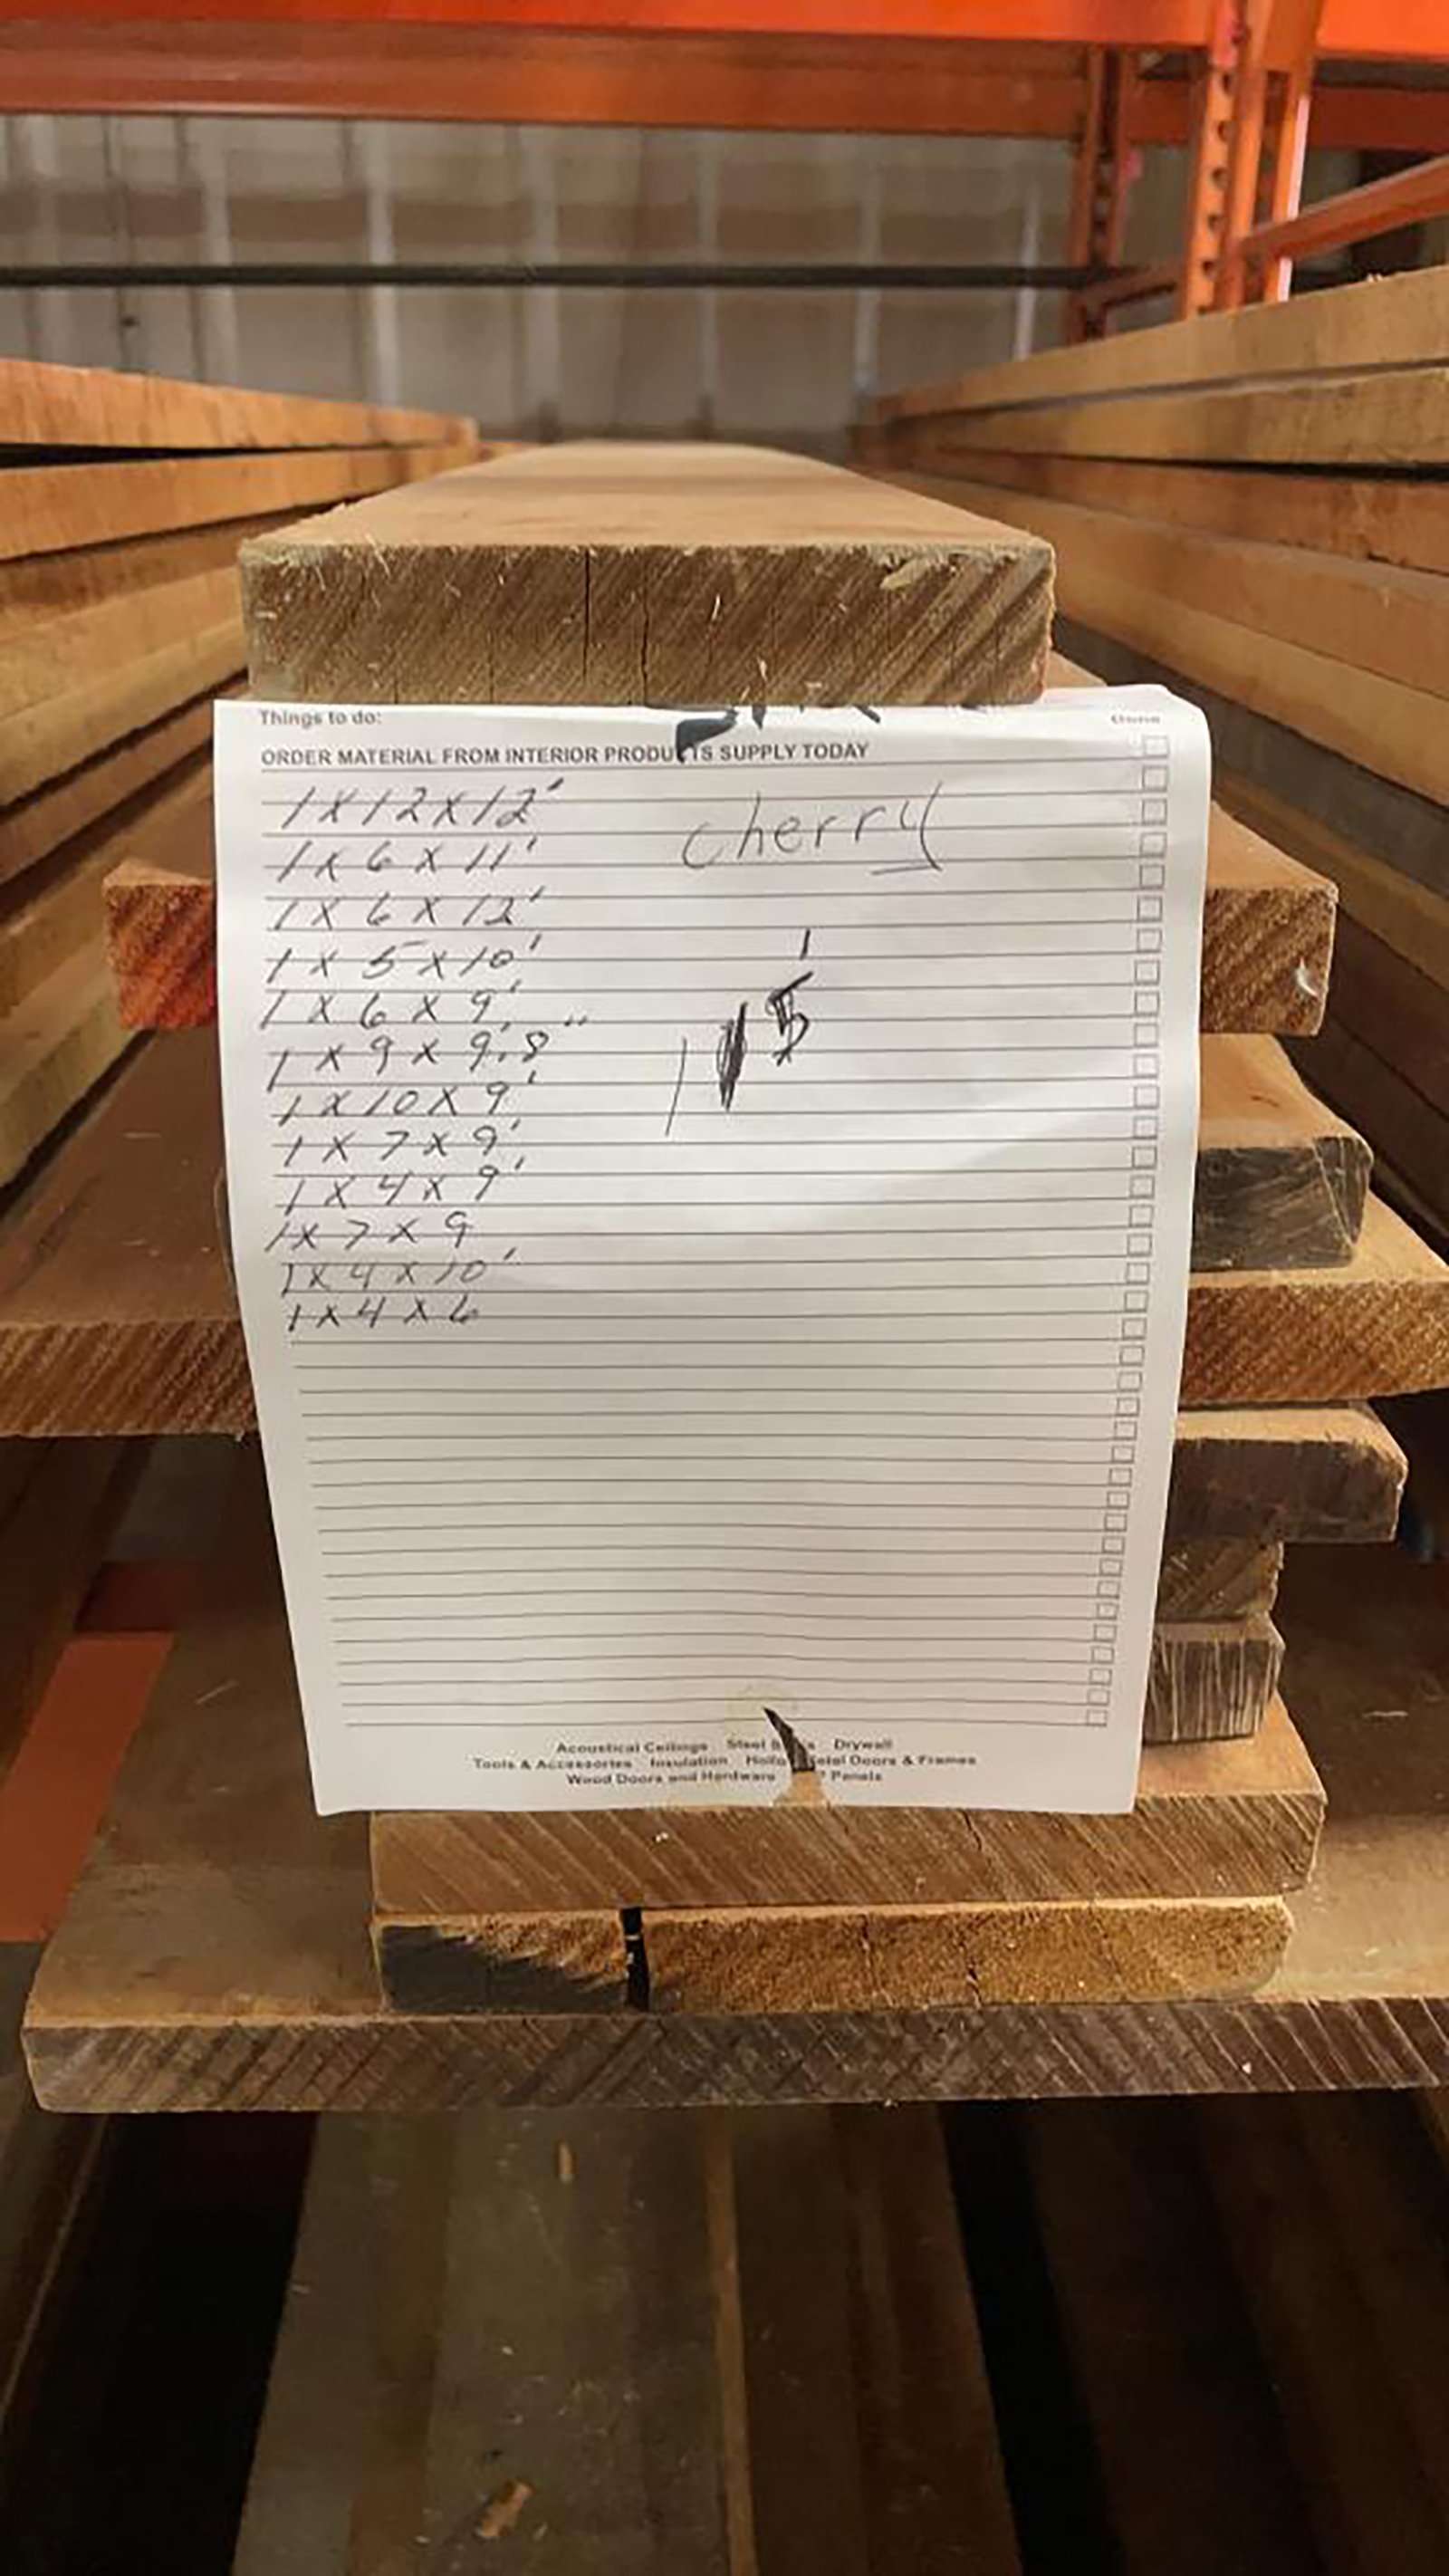 Things to do:
ORDER MATERIAL FROM INTERIOR PRODUCTS SUPPLY TODAY
1 x 12 x 12'
cherry
1 x 6 x 11'
1 x 6 x 12'
1 x 5 x 10'
1 x 6 x 9'
1 x 9 x 9'.8"
1 x 10 x 9'
1 x 7 x 9'
1 x 4 x 9'
1 x 7 x 9
1 x 4 x 10'
1 x 4 x 6
Acoustical Ceilings Steel Drywall
Tools & Accessories Insulation Hollow Metal Doors & Frames
Wood Doors and Hardware Panels